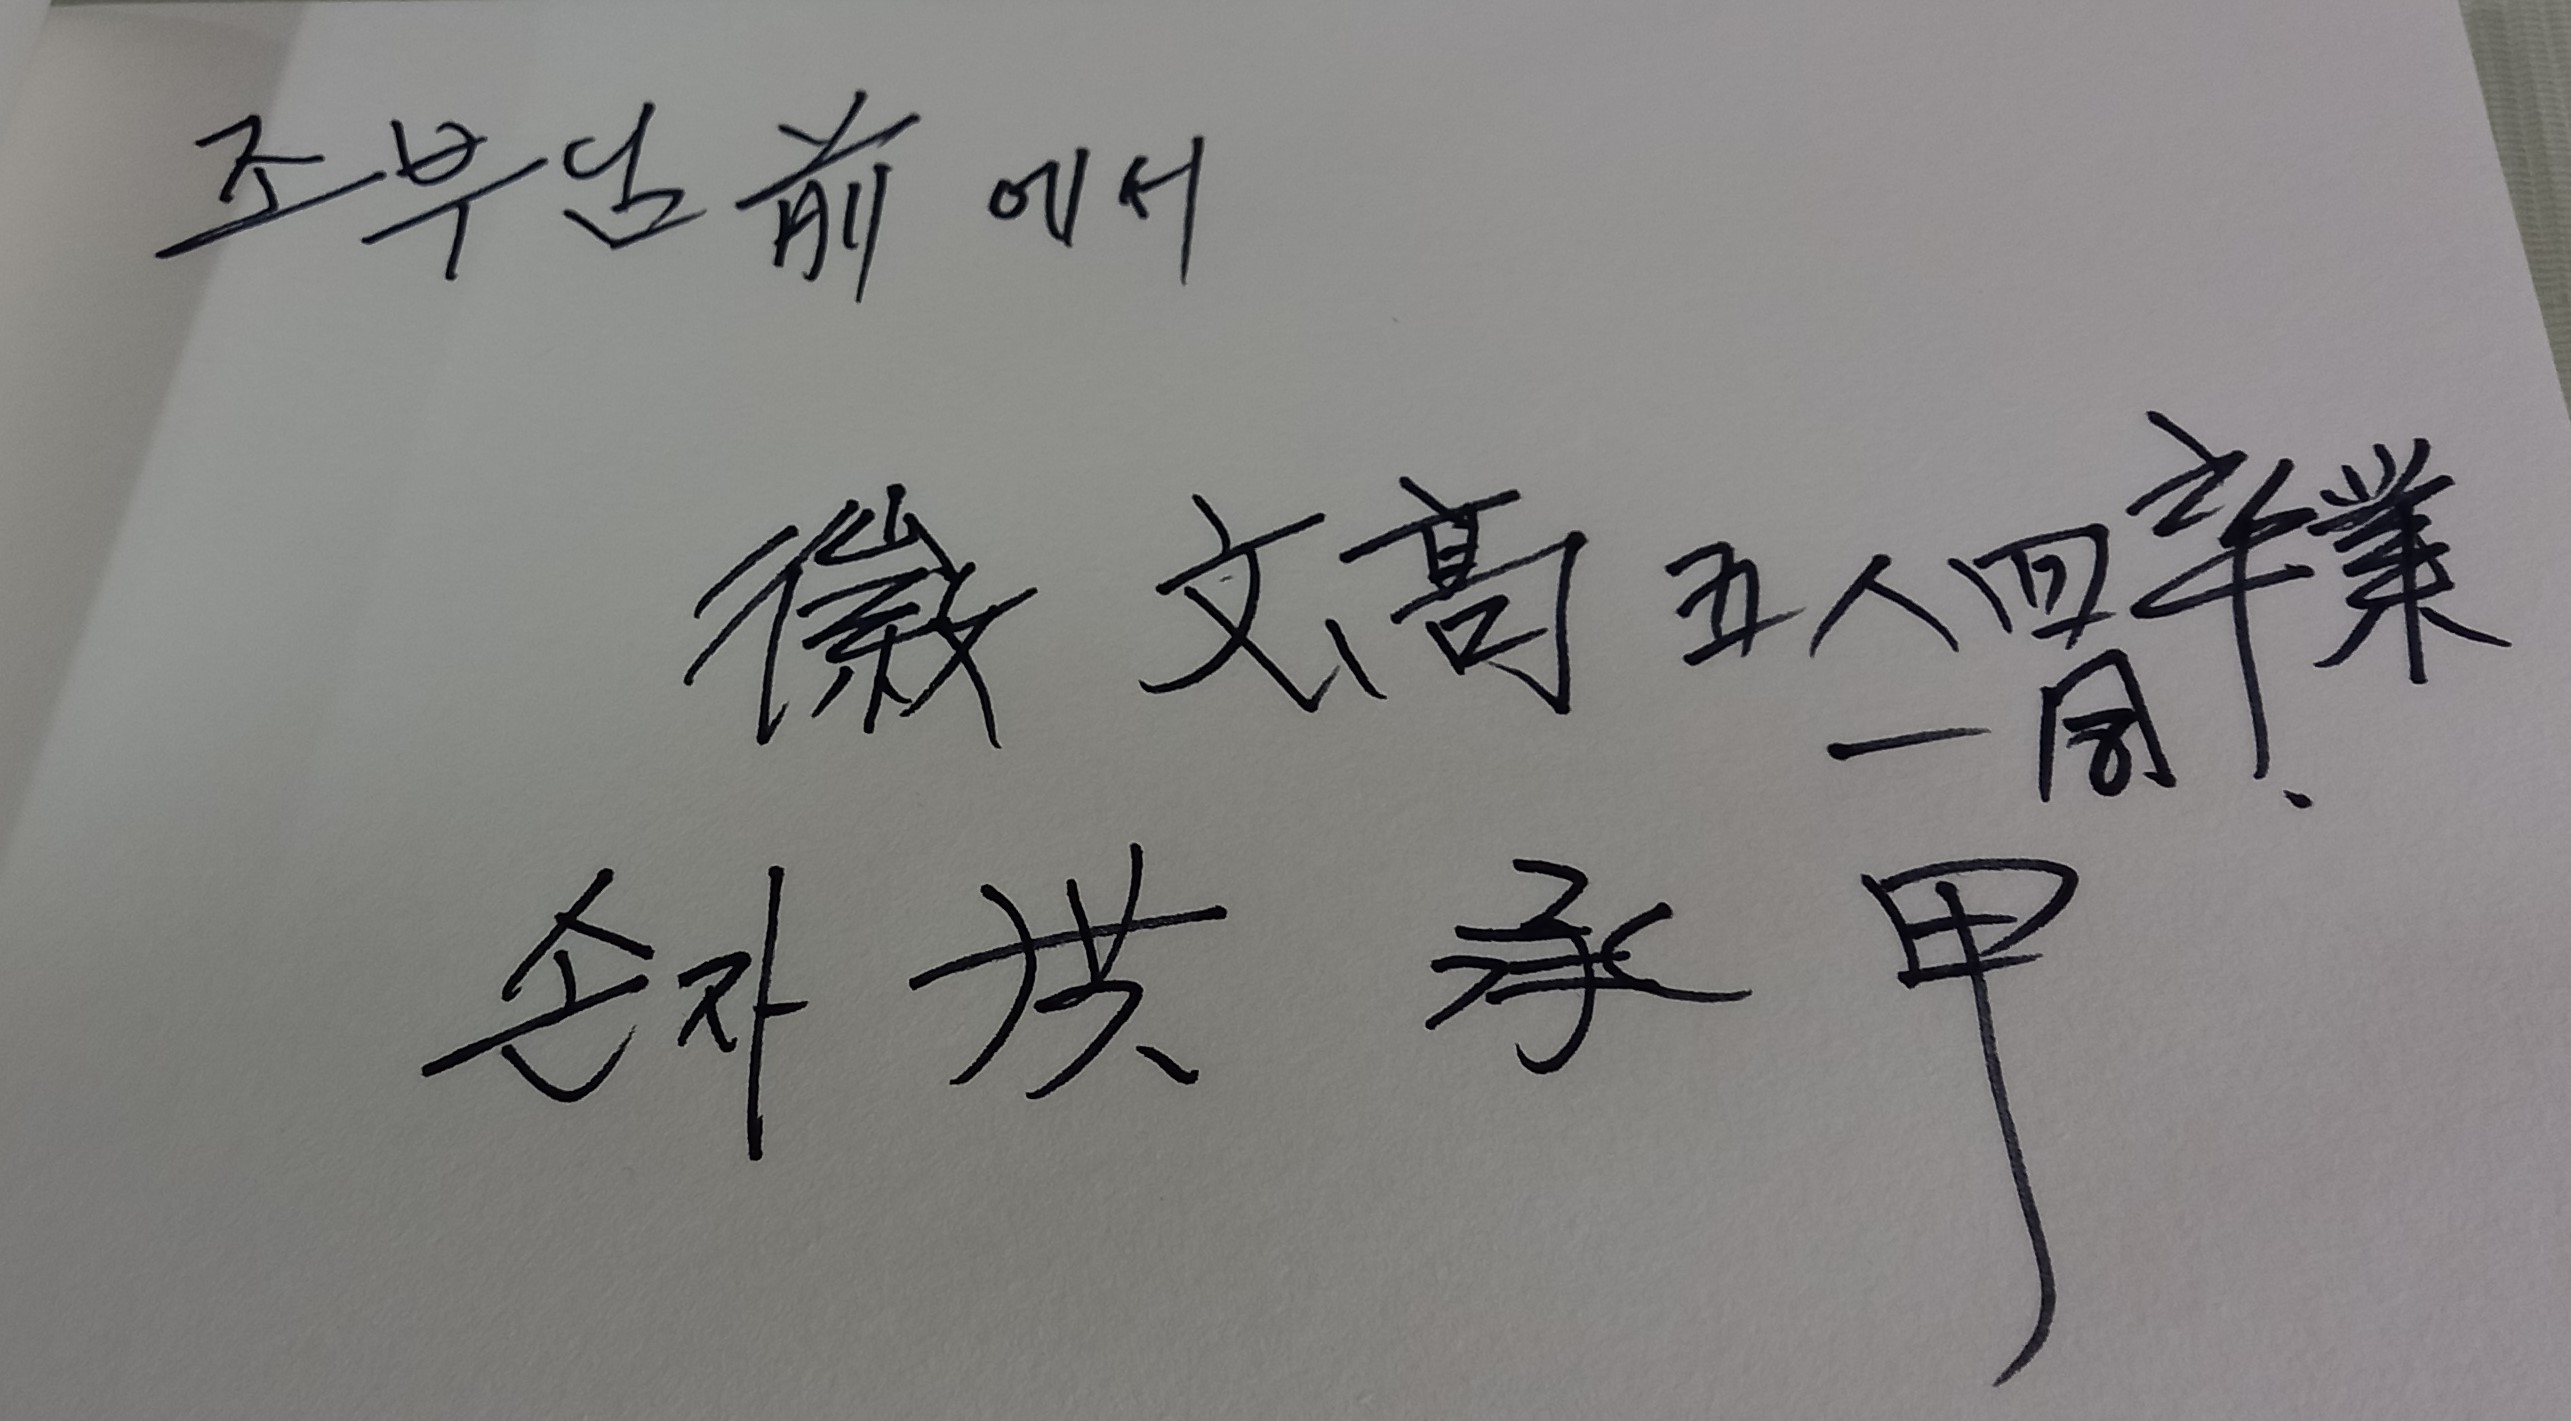 조부님 前 에서
徽 文高 五八四 卒業
一同.
손자 洪 承 甲